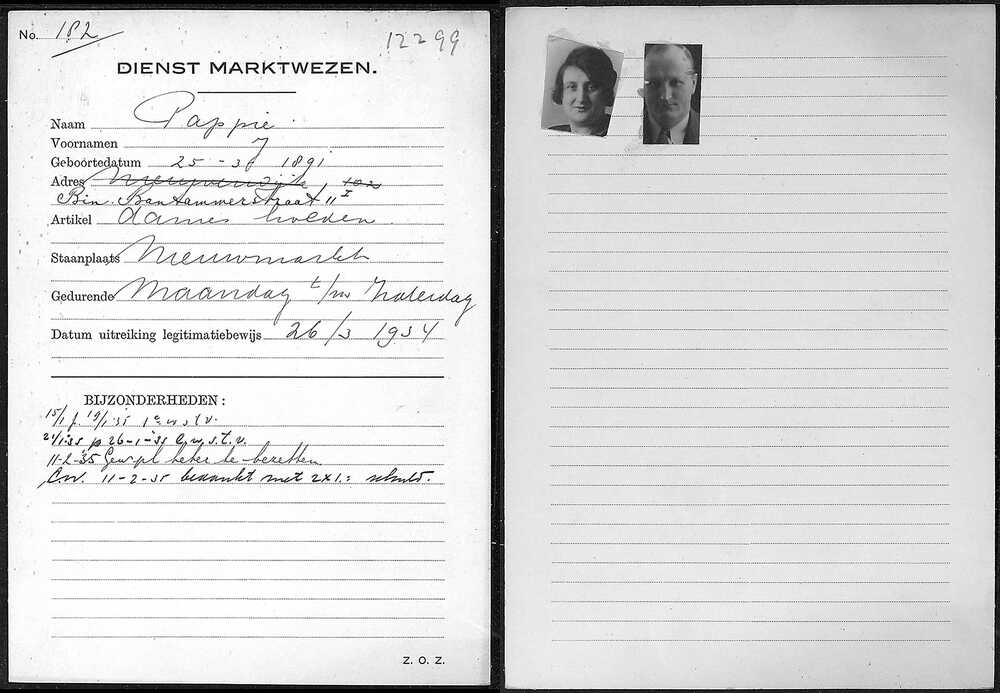 No. 182
12299
DIENST MARKTWEZEN.
Naam Pappie
Voornamen J
Geboortedatum 25 - 3 1891
Adres
Bin. Bantammerstraat 11 I
Artikel dames hoeden
Staanplaats Nieuwmarkt
Gedurende Maandag t/m Zaterdag
Datum uitreiking legitimatiebewijs 26/3 1934
BIJZONDERHEDEN:
15/1 19/1·35 1e w s t v.
21/1·35 26-1-'35 w.s.t.v.
11-2-'35 beter te bezetten
11-2-35 bedankt met 2x1.= schuld.
Z. O. Z.